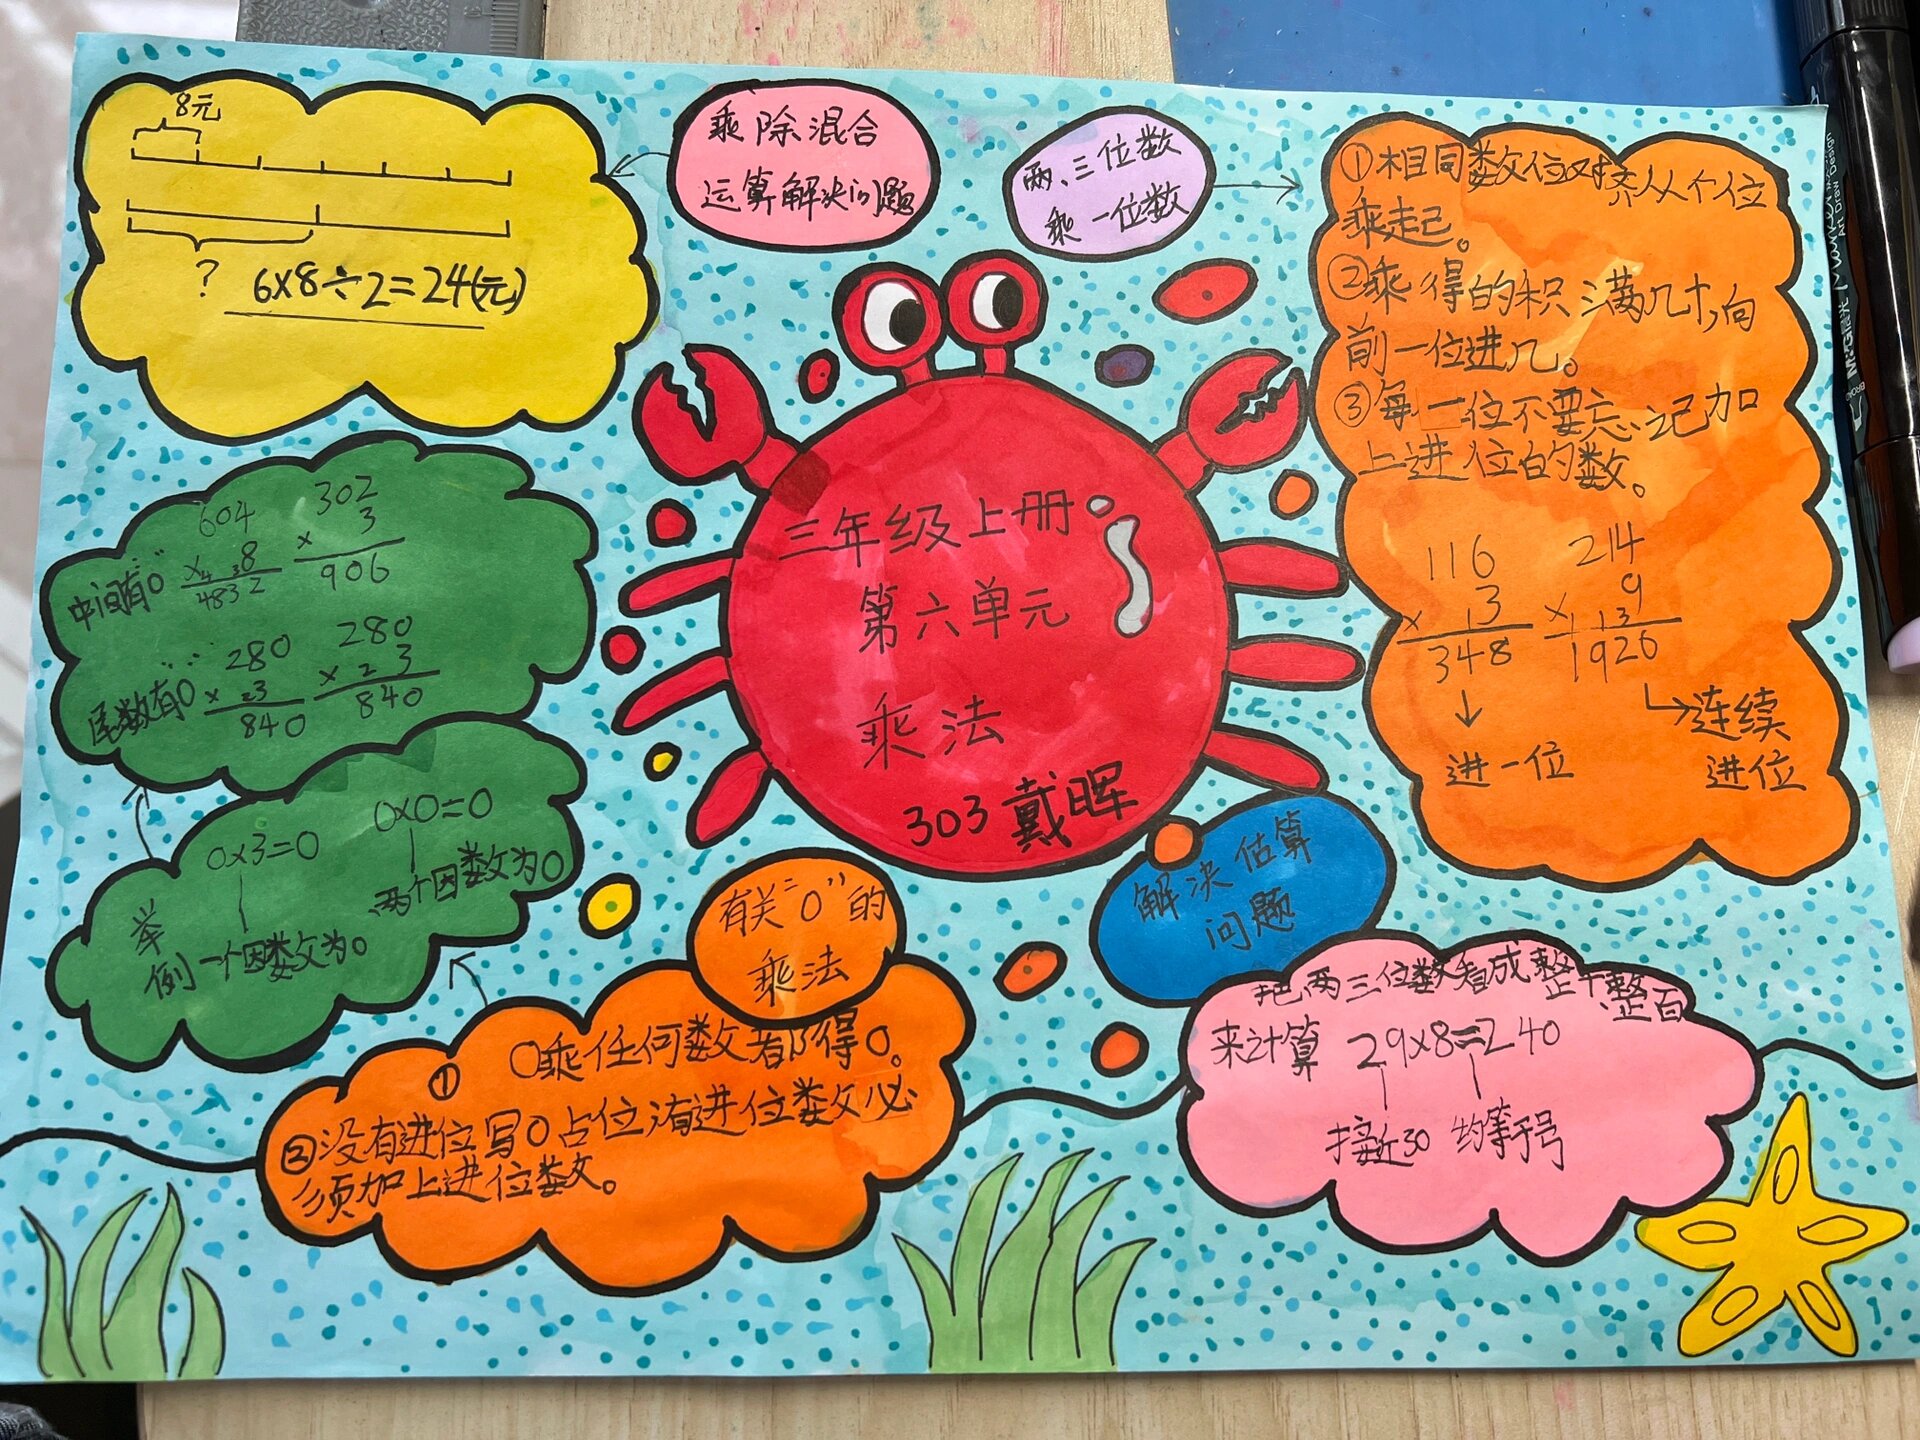 8元
?
6×8÷2=24(元)
乘除混合
运算解决问题
两、三位数
乘一位数
①相同数位对齐从个位
乘起。
②乘得的积满几十,向
前一位进几。
③每一位不要忘记加
上进位的数。
116
× 13
348
214
9
× 1 13
1926
进一位
连续
进位
三年级上册
第六单元
乘法
303戴晖
604
×4 38
4832
302
× 3
906
中间有"0"
280
× 23
840
280
× 2 3
840
尾数有0
0×3=0
0×0=0
两个因数为0
举
例
一个因数为0
有关"0"的
乘法
① 0乘任何数都得0。
②没有进位写0占位,有进位数必
须加上进位数。
解决估算
问题
把两三位数看成整十、整百
来计算 29×8≈240
接近30 约等于号